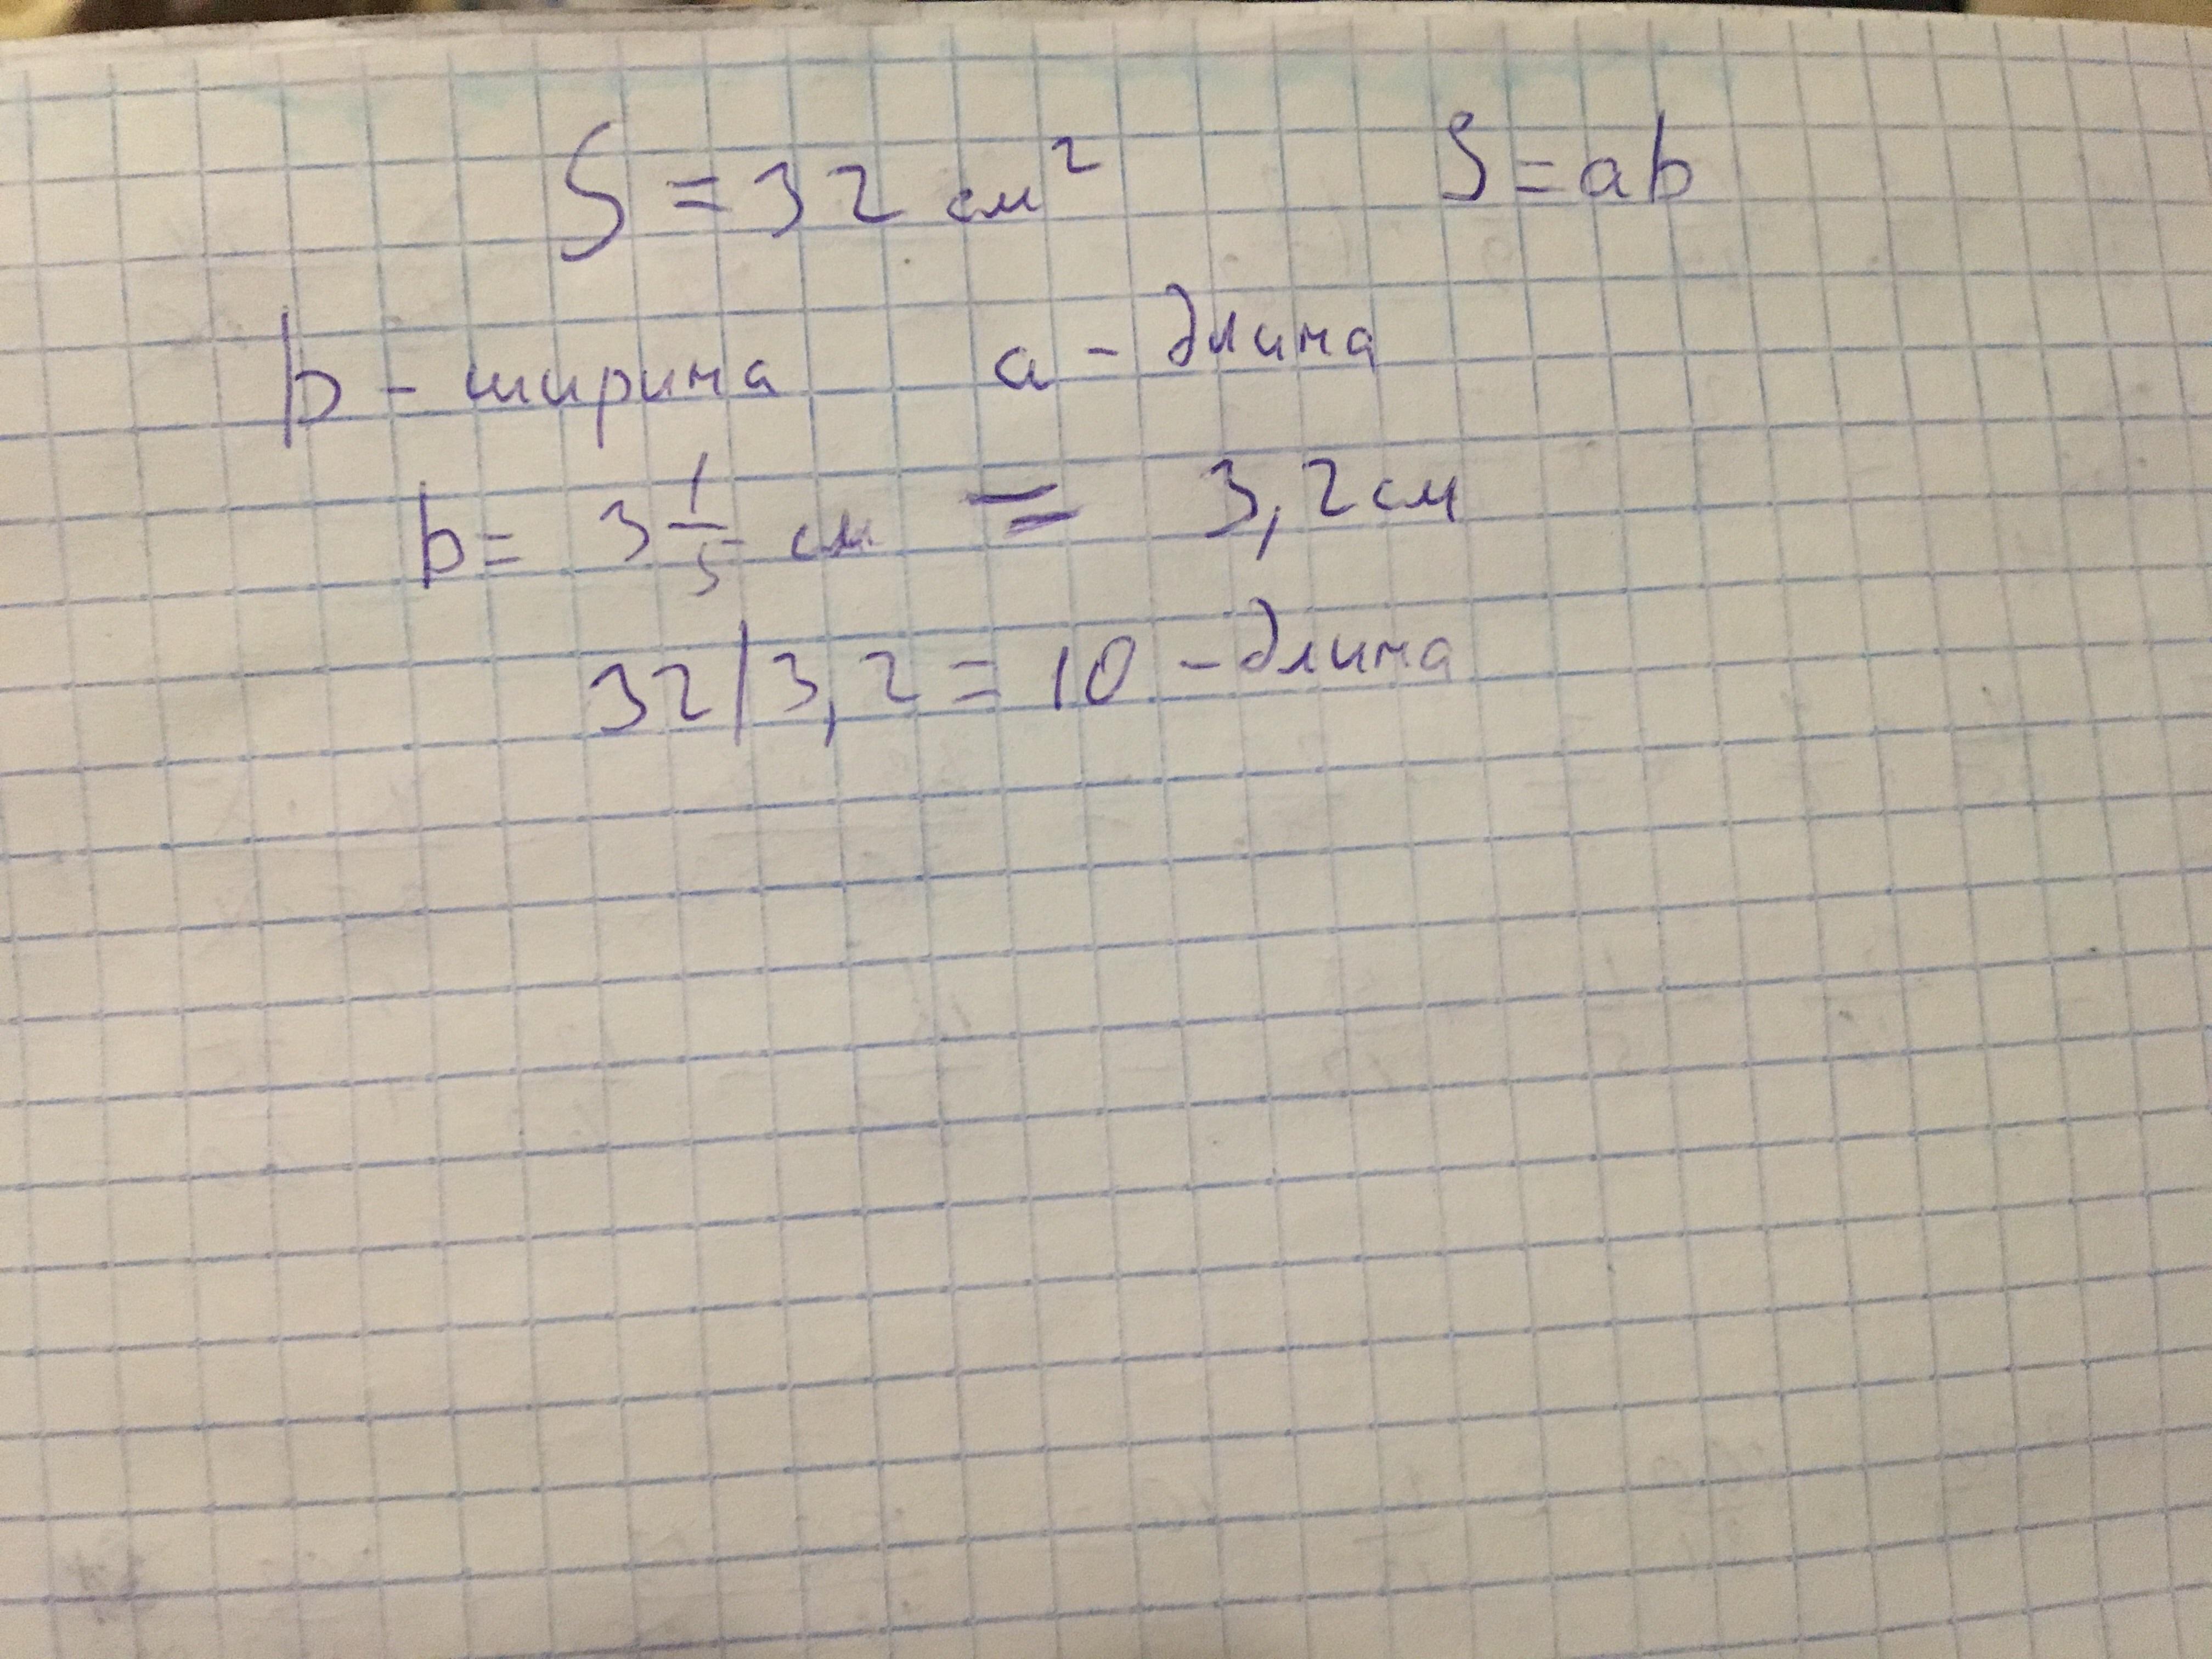 S = 32 см² S = ab
b - ширина a - длина
b = 3 1/5 см = 3,2 см
32 | 3,2 = 10 - длина